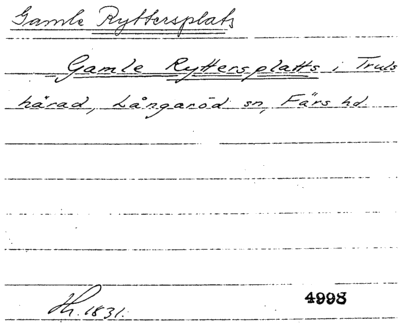 Gamle Ryttersplats
Gamle Ryttersplatts i Truls
härad, Långaröd sn, Färs hd.
1831.
4998